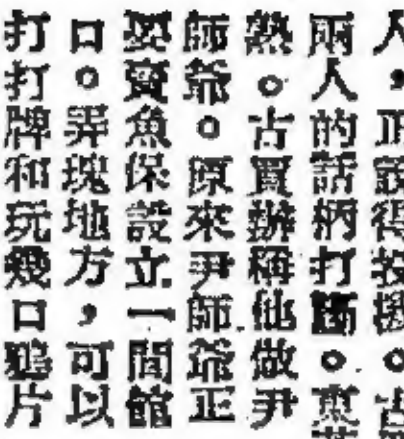 人，正說得投機。
兩人的話柄打斷。
熟。古買辦稱他做尹
師爺。原來尹師爺正
要賣魚保設立一間館
口。弄塊地方，可以
打打牌和玩幾口鴉片